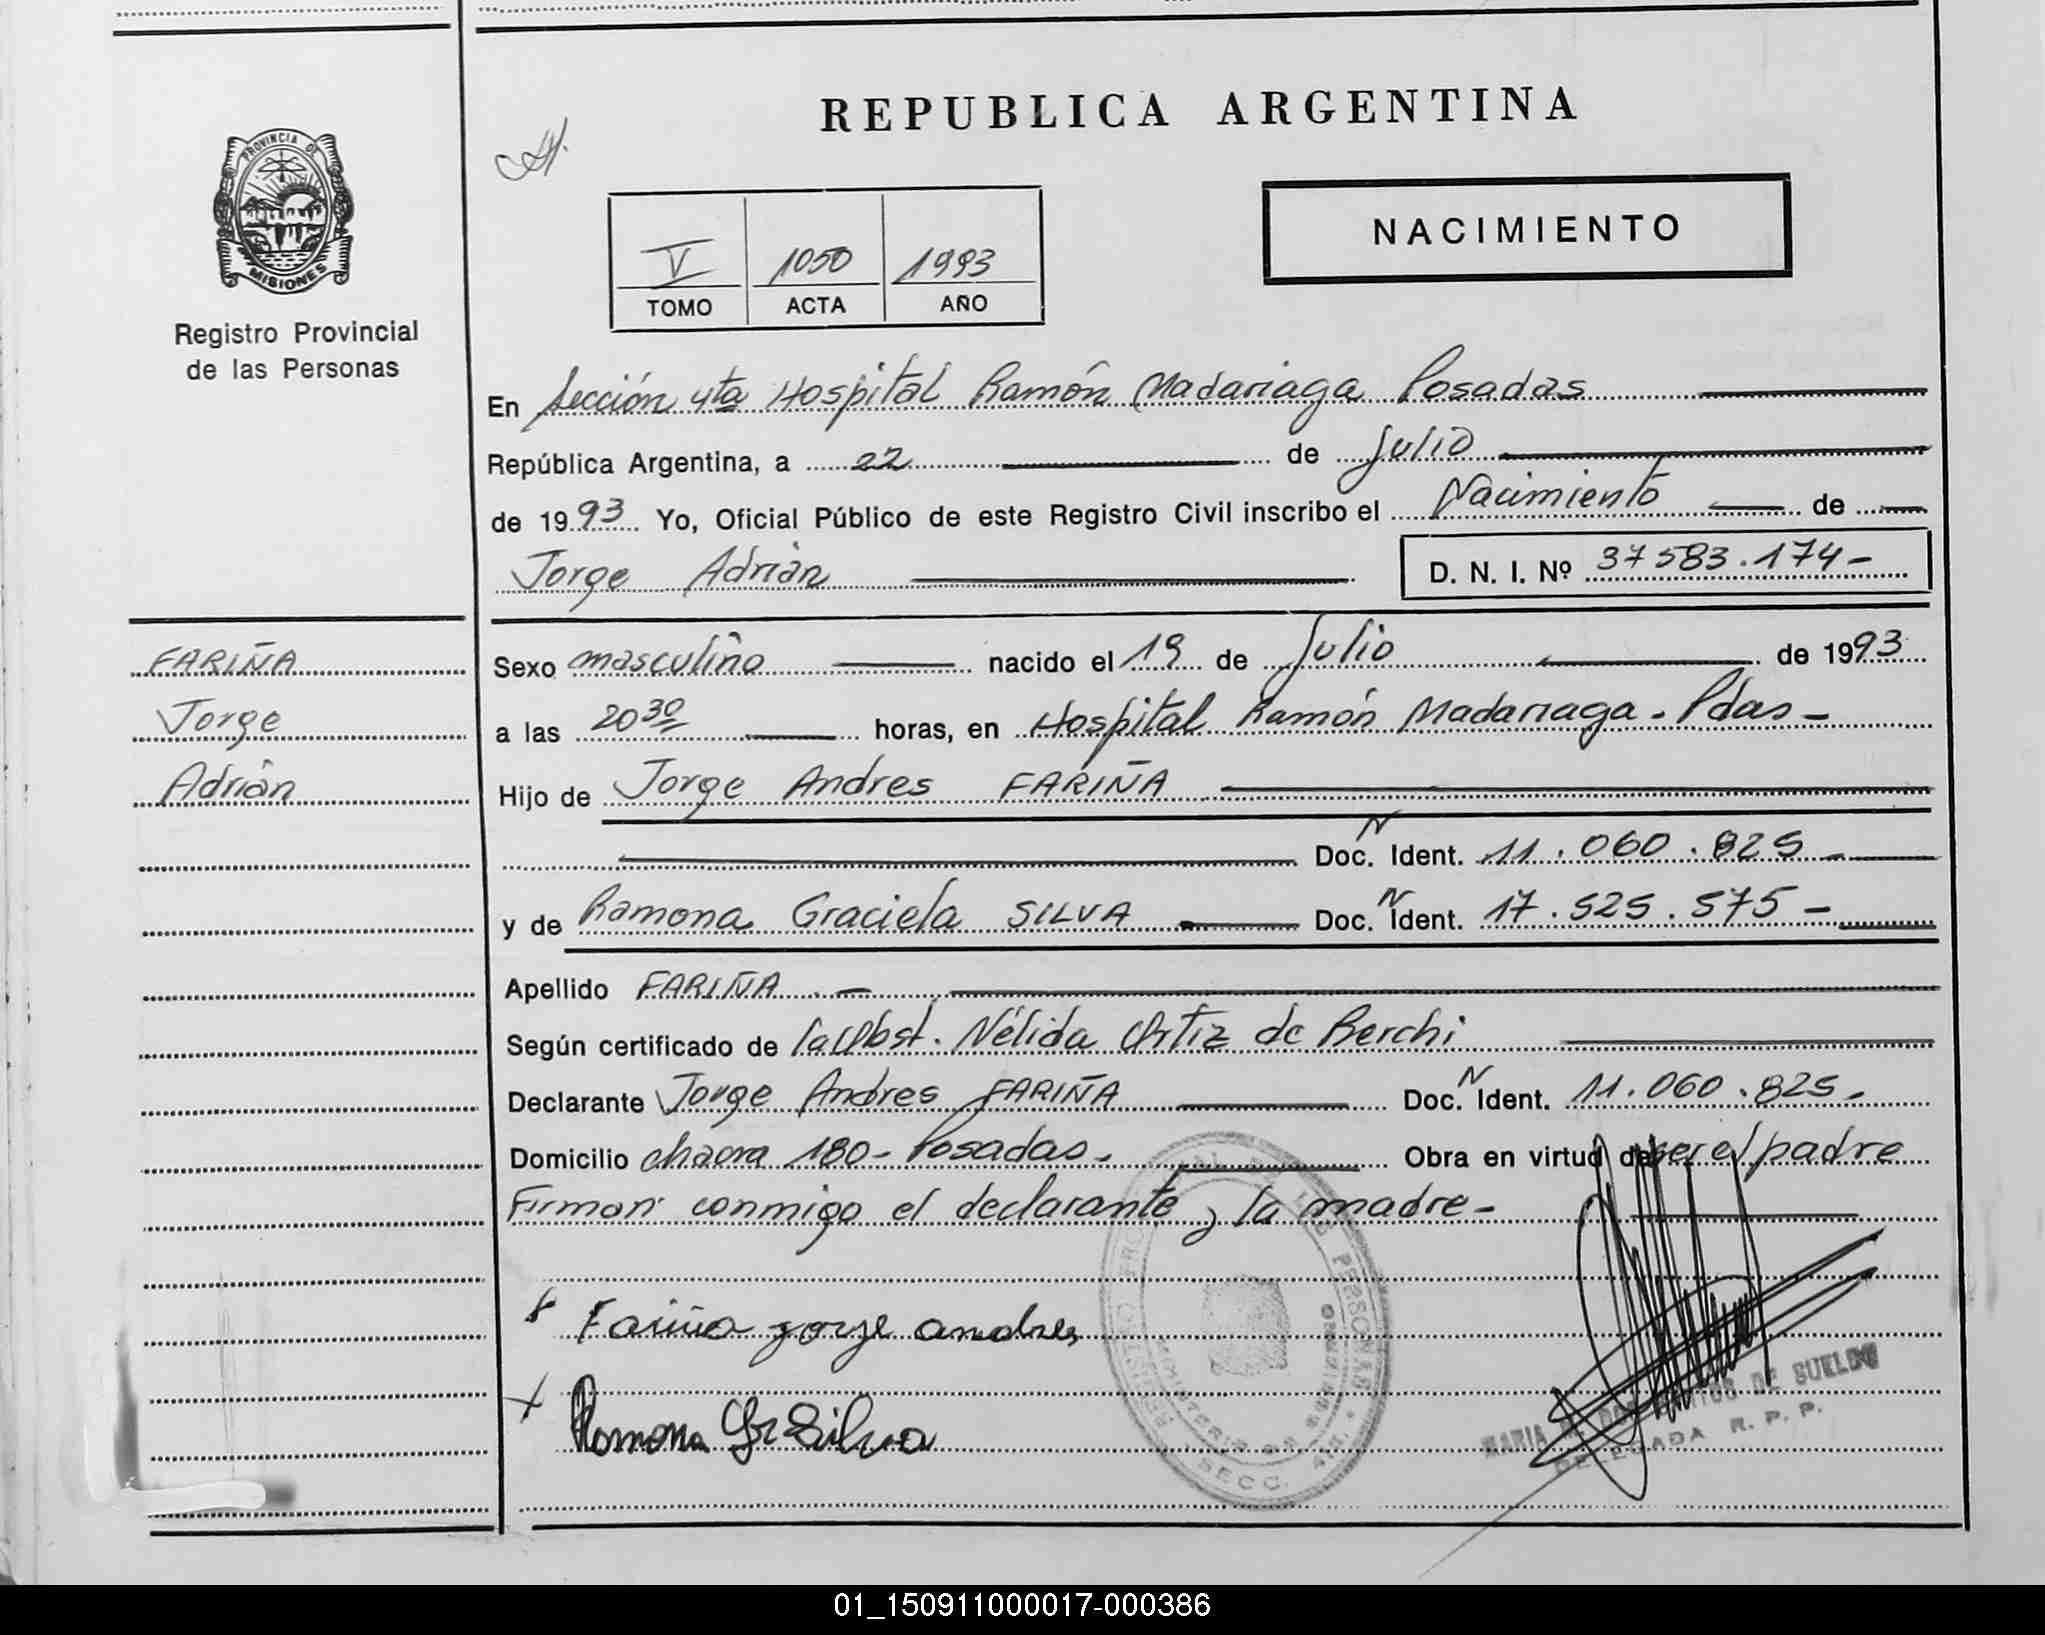 REPUBLICA ARGENTINA
PROVINCIA DE
MISIONES
Registro Provincial
de las Personas
V 1050 1993
TOMO ACTA AÑO
NACIMIENTO
En Sección 4ta Hospital Ramón Madariaga Posadas
República Argentina, a 22 de Julio
de 1993 Yo, Oficial Público de este Registro Civil inscribo el Nacimiento de
Jorge Adrián D. N. I. Nº 37583.174-
FARIÑA
Jorge
Adrián
Sexo masculino nacido el 19 de Julio de 1993
a las 20 30 horas, en Hospital Ramón Madariaga - Pdas -
Hijo de Jorge Andres FARIÑA
Doc. N Ident. 11.060.825 -
y de Ramona Graciela SILVA Doc. N Ident. 17.525.575 -
Apellido FARIÑA. -
Según certificado de la Obst. Nélida Ortiz de Berchi
Declarante Jorge Andres FARIÑA Doc. N Ident. 11.060.825 -
Domicilio chacra 180 - Posadas. Obra en virtud de ser el padre
Firman conmigo el declarante y la madre -
x Fariña jorge andres
x Ramona Gr Silva
REGISTRO PROVINCIAL DE LAS PERSONAS
MINISTERIO DE GOBIERNO
SECC. 4ta.
MARIA DE SUELDO
DELEGADA R. P. P.
01_150911000017-000386